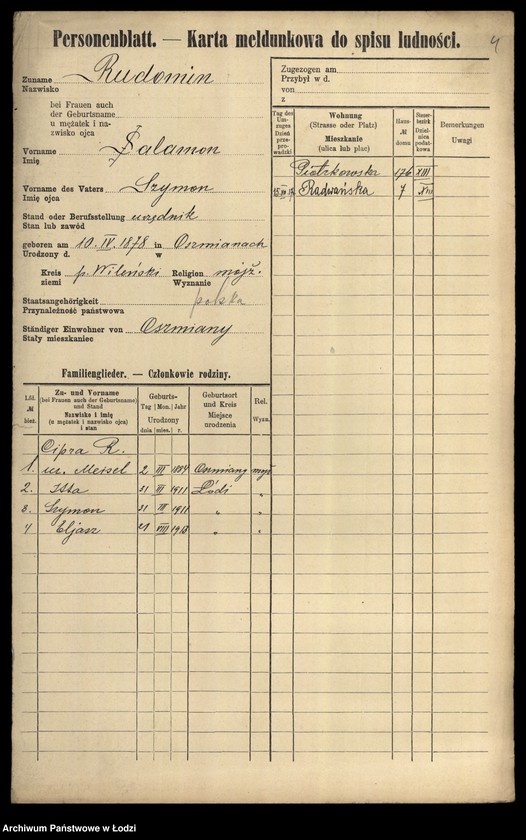 4
Personenblatt. — Karta meldunkowa do spisu ludności.
Zuname Rudomin
Nazwisko
bei Frauen auch
der Geburtsname
u mężatek i na-
zwisko ojca
Vorname Salamon
Imię
Vorname des Vaters Szymon
Imię ojca
Stand oder Berufsstellung urzędnik
Stan lub zawód
geboren am 10. IV. 1878 in Oszmianach
Urodzony d. w
Kreis p. Wileński Religion mojż.
ziemi Wyznanie
Staatsangehörigkeit polska
Przynależność państwowa
Ständiger Einwohner von Oszmiany
Stały mieszkaniec
Familienglieder. — Członkowie rodziny.
Zu- und Vorname
(bei Frauen auch der Geburtsname)
und Stand
Nazwisko i imię
(u mężatek i nazwisko ojca)
i stan
Geburts-
Tag Mon. Jahr
Urodzony
dnia mies. r.
Geburtsort
und Kreis
Miejsce
urodzenia
Rel.
Wyzn.
№
bież.
Cipra R.
1. ur. Meisel 2 III 1884 Oszmiany mojż
2. Itta 31 III 1911 Łódź "
3. Szymon 31 III 1911 " "
4 Eljasz 21 VIII 1913 " "
Zugezogen am
Przybył w d.
von
z
Tag des
Um-
zuges
Dzień
prze-
pro-
wadzki
Wohnung
(Strasse oder Platz)
Mieszkanie
(ulica lub plac)
Haus-
№
domu
Steuer-
bezirk
Dziel-
nica
podat-
kowa
Bemerkungen
Uwagi
Piotrkowska 176 XIII
Radwańska 7 XIII
Archiwum Państwowe w Łodzi